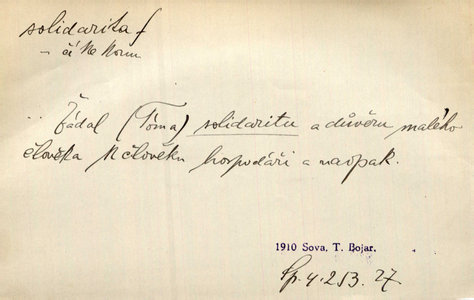 solidarita f
– čí ke komu
Žádal (Tóma) solidaritu a důvěru malého
člověka k člověku hospodáři a naopak.
1910 Sova, T. Bojar.
Sp. 4. 253. 27.